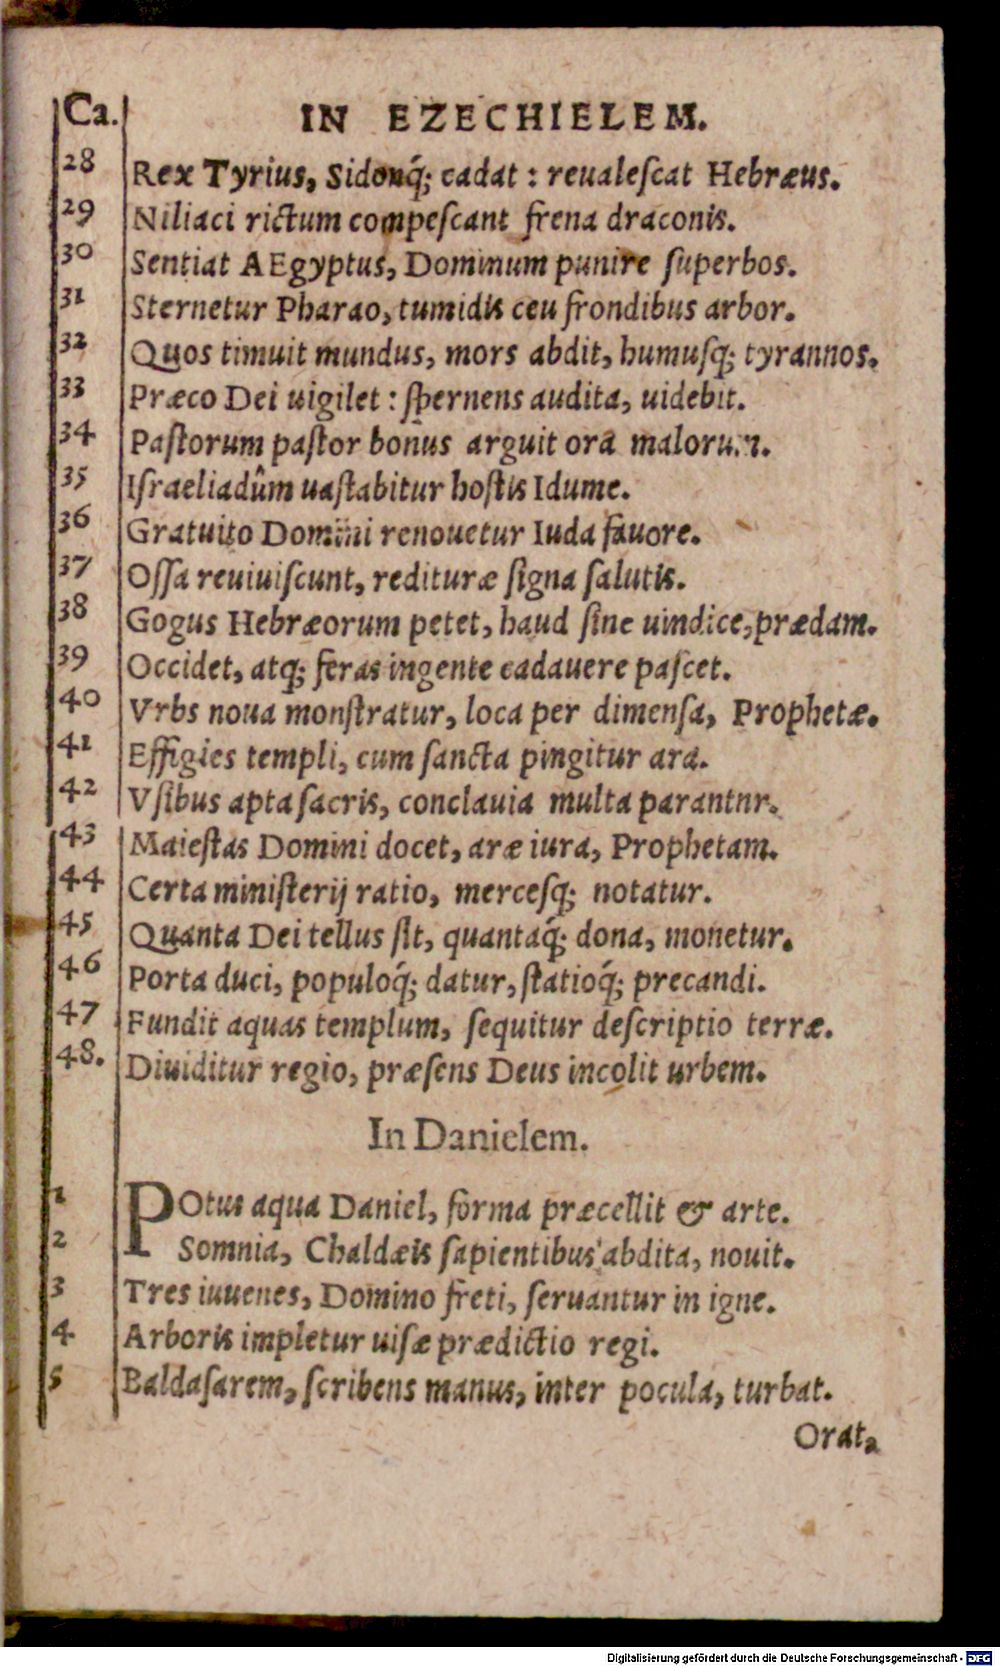 Ca. IN EZECHIELEM.
28 Rex Tyrius, Sidonq́; cadat : reualeſcat Hebræus.
29 Niliaci rictum compeſcant frena draconis.
30 Sentiat AEgyptus, Dominum punire ſuperbos.
31 Sternetur Pharao, tumidis ceu frondibus arbor.
32 Quos timuit mundus, mors abdit, humuſq; tyrannos.
33 Præco Dei uigilet : ſpernens audita, uidebit.
34 Paſtorum paſtor bonus arguit ora malorum.
35 Iſraeliadûm uaſtabitur hoſtis Idume.
36 Gratuito Domini renouetur Iuda fauore.
37 Oſſa reuiuiſcunt, redituræ ſigna ſalutis.
38 Gogus Hebræorum petet, haud ſine uindice, prædam.
39 Occidet, atq; feras ingente cadauere paſcet.
40 Vrbs noua monſtratur, loca per dimenſa, Prophetæ.
41 Effigies templi, cum ſancta pingitur ara.
42 Vſibus apta ſacris, conclauia multa parantnr.
43 Maieſtas Domini docet, aræ iura, Prophetam.
44 Certa miniſterij ratio, merceſq; notatur.
45 Quanta Dei tellus ſit, quantaq́; dona, monetur.
46 Porta duci, populoq́; datur, ſtatioq́; precandi.
47 Fundit aquas templum, ſequitur deſcriptio terræ.
48. Diuiditur regio, præſens Deus incolit urbem.
In Danielem.
1 POtus aqua Daniel, forma præcellit & arte.
2 Somnia, Chaldæis ſapientibus abdita, nouit.
3 Tres iuuenes, Domino freti, ſeruantur in igne.
4 Arboris impletur uiſæ prædictio regi.
5 Baldaſarem, ſcribens manus, inter pocula, turbat.
Orat,
Digitalisierung gefördert durch die Deutsche Forschungsgemeinschaft - DFG